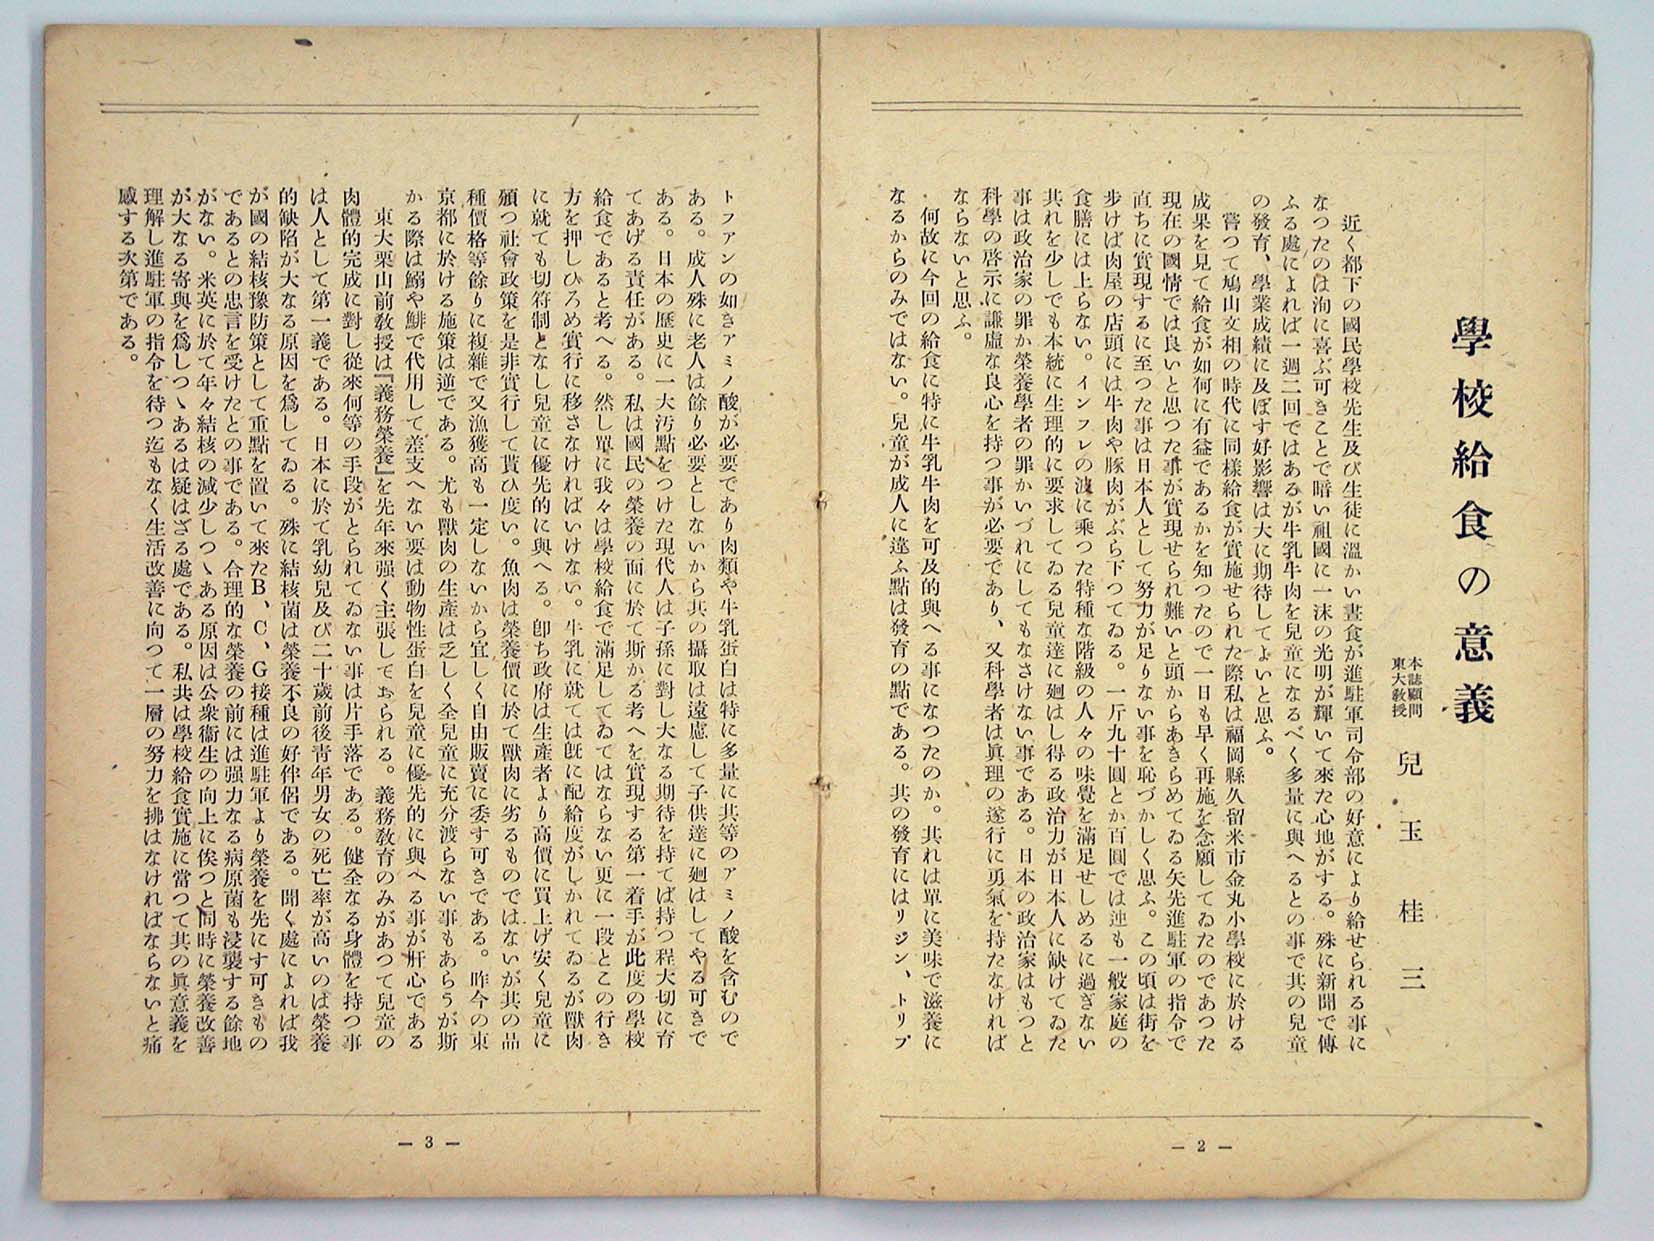 學校給食の意義
本誌顧問
東大敎授
兒玉桂三
近く都下の國民學校先生及び生徒に溫かい晝食が進駐軍司令部の好意により給せられる事に
なつたのは洵に喜ぶ可きことで暗い祖國に一沫の光明が輝いて來た心地がする。殊に新聞で傳
ふる處によれば一週二回ではあるが牛乳牛肉を兒童になるべく多量に與へるとの事で其の兒童
の發育、學業成績に及ぼす好影響は大に期待してよいと思ふ。
嘗つて鳩山文相の時代に同樣給食が實施せられた際私は福岡縣久留米市金丸小學校に於ける
成果を見て給食が如何に有益であるかを知つたので一日も早く再施を念願してゐたのであつた
現在の國情では良いと思つた事が實現せられ難いと頭からあきらめてゐる矢先進駐軍の指令で
直ちに實現するに至つた事は日本人として努力が足りない事を恥づかしく思ふ。この頃は街を
步けば肉屋の店頭には牛肉や豚肉がぶら下つてゐる。一斤九十圓とか百圓では迚も一般家庭の
食膳には上らない。インフレの波に乘つた特種な階級の人々の味覺を滿足せしめるに過ぎない
共れを少しでも本統に生理的に要求してゐる兒童達に廻はし得る政治力が日本人に缺けてゐた
事は政治家の罪か榮養學者の罪かいづれにしてもなさけない事である。日本の政治家はもつと
科學の啓示に謙虛な良心を持つ事が必要であり、又科學者は眞理の遂行に勇氣を持たなければ
ならないと思ふ。
何故に今回の給食に特に牛乳牛肉を可及的與へる事になつたのか。其れは單に美味で滋養に
なるからのみではない。兒童が成人に違ふ點は發育の點である。共の發育にはリジン、トリプ
― 2 ―
トフアンの如きアミノ酸が必要であり肉類や牛乳蛋白は特に多量に共等のアミノ酸を含むので
ある。成人殊に老人は餘り必要としないから共の攝取は遠慮して子供達に廻はしてやる可きで
ある。日本の歷史に一大汚點をつけた現代人は子孫に對し大なる期待を持てば持つ程大切に育
てあげる責任がある。私は國民の榮養の面に於て斯かる考へを實現する第一着手が此度の學校
給食であると考へる。然し單に我々は學校給食で滿足してゐてはならない更に一段とこの行き
方を押しひろめ實行に移さなければいけない。牛乳に就ては旣に配給度がしかれてゐるが獸肉
に就ても切符制となし兒童に優先的に與へる。卽ち政府は生產者より高價に買上げ安く兒童に
頒つ社會政策を是非實行して貰ひ度い。魚肉は榮養價に於て獸肉に劣るものではないが其の品
種價格等餘りに複雜で又漁獲高も一定しないから宜しく自由販賣に委す可きである。昨今の東
京都に於ける施策は逆である。尤も獸肉の生產は乏しく全兒童に充分渡らない事もあらうが斯
かる際は鰯や鯡で代用して差支へない要は動物性蛋白を兒童に優先的に與へる事が肝心である
東大栗山前敎授は『義務榮養』を先年來强く主張しておられる。義務敎育のみがあつて兒童の
肉體的完成に對し從來何等の手段がとられてゐない事は片手落である。健全なる身體を持つ事
は人として第一義である。日本に於て乳幼兒及び二十歲前後靑年男女の死亡率が高いのは榮養
的缺陷が大なる原因を爲してゐる。殊に結核菌は榮養不良の好伴侶である。聞く處によれば我
が國の結核豫防策として重點を置いて來たB、C、G接種は進駐軍より榮養を先にす可きもの
であるとの忠言を受けたとの事である。合理的な榮養の前には强力なる病原菌も浸襲する餘地
がない。米英に於て年々結核の減少しつゝある原因は公衆衞生の向上に俟つと同時に榮養改善
が大なる寄與を爲しつゝあるは疑はざる處である。私共は學校給食實施に當つて其の眞意義を
理解し進駐軍の指令を待つ迄もなく生活改善に向つて一層の努力を拂はなければならないと痛
感する次第である。
― 3 ―